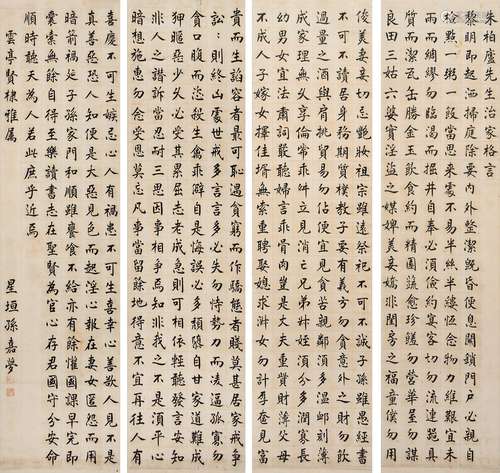 朱柏廬先生治家格言
黎明即起灑掃庭除要內外整潔既昏便息關鎖門戶必親自
檢點一粥一飯當思來處不易半絲半縷恆念物力維艱宜未
雨而綢繆勿臨渴而掘井自奉必須儉約宴客切勿流連器具
質而潔瓦缶勝金玉飲食約而精園蔬愈珍饈勿營華屋勿謀
良田三姑六婆實淫盜之媒婢美妾嬌非閨房之福童僕勿用
俊美妻妾切忌艷妝祖宗雖遠祭祀不可不誠子孫雖愚經書
不可不讀居身務期質樸教子要有義方勿貪意外之財勿飲
過量之酒與肩挑貿易勿佔便宜見貧苦親鄰須多溫卹刻薄
成家理無久享倫常乖舛立見消亡兄弟叔姪須分多潤寡長
幼男女宜法肅詞嚴聽婦言乖骨肉豈是丈夫重貲財薄父母
不成人子嫁女擇佳婿無索重聘娶媳求淑女勿計厚奩見富
貴而生諂容者最可恥遇貧窮而作驕態者賤莫甚居家戒爭
訟訟則終凶處世戒多言言多必失勿恃勢力而凌逼孤寡勿
貪口腹而恣殺生禽乖僻自是悔誤必多頹隳自甘家道難成
狎暱惡少久必受其累屈志老成急則可相依輕聽發言安知
非人之譖訴當忍耐三思因事相爭焉知非我之不是須平心
暗想施惠勿念受恩莫忘凡事當留餘地得意不宜再往人有
喜慶不可生嫉忌心人有禍患不可生喜幸心善欲人見不是
真善惡恐人知便是大惡見色而起淫心報在妻女匿怨而用
暗箭禍延子孫家門和順雖饔飧不給亦有餘懽國課早完即
囊橐無餘自得至樂讀書志在聖賢為官心存君國守分安命
順時聽天為人若此庶乎近焉
雲亭賢棣雅屬
星垣孫嘉夢